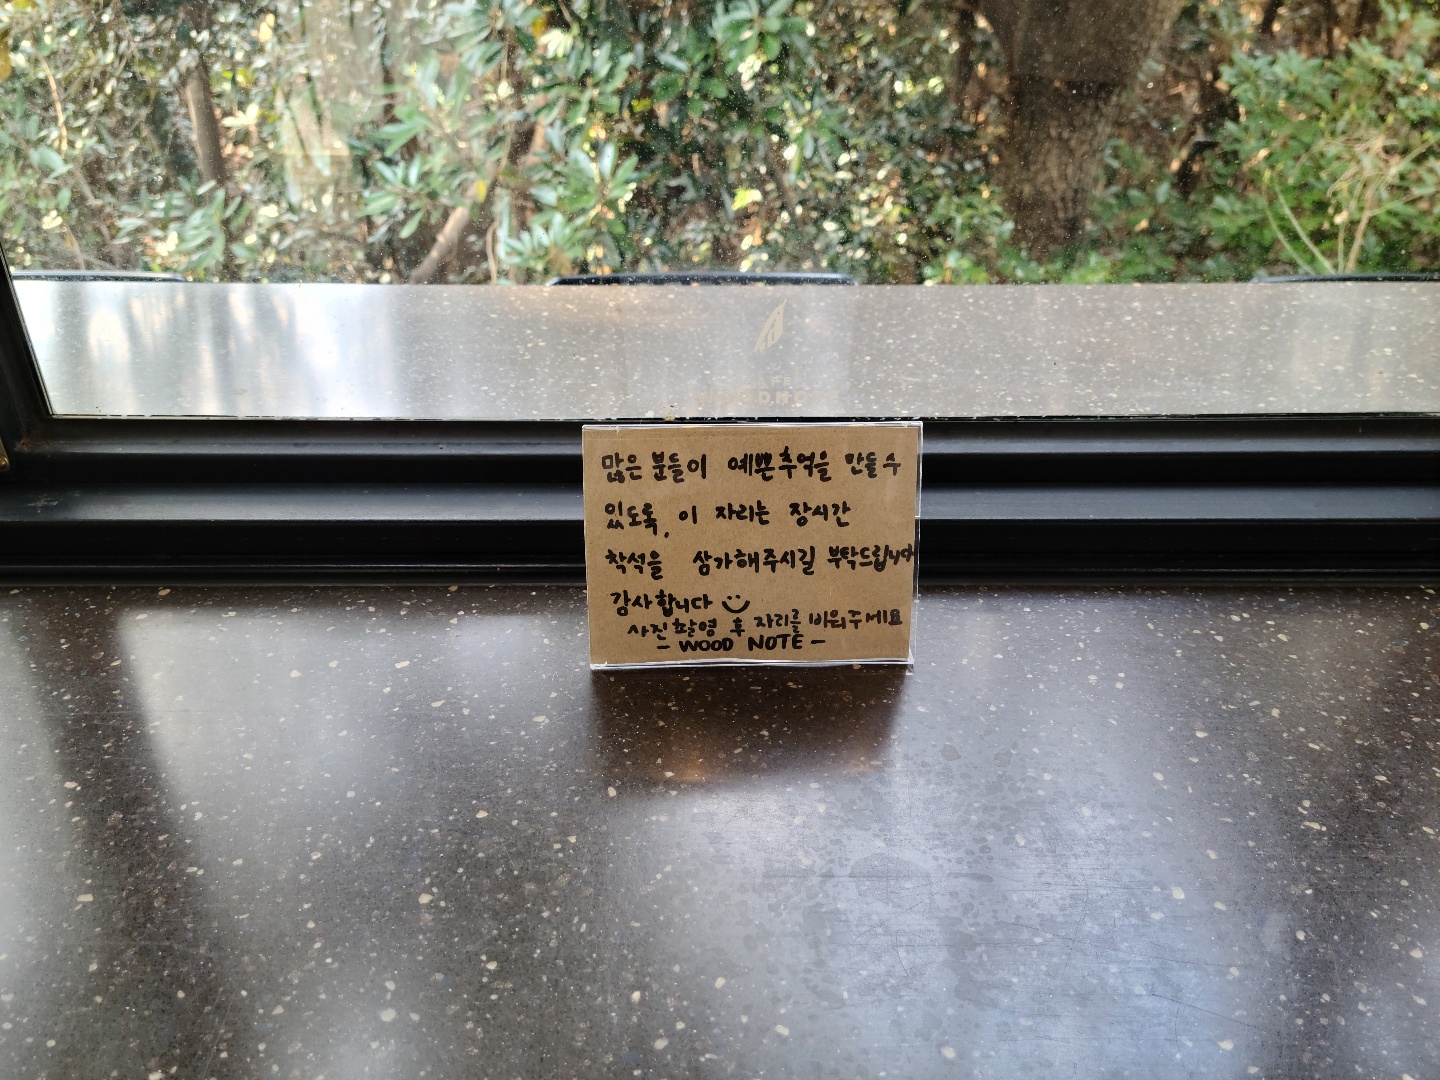 많은 분들이 예쁜 추억을 만들 수
있도록, 이 자리는 장시간
착석을 삼가해주시길 부탁드립니다
감사합니다
사진 촬영 후 자리를 비워주세요
- WOOD NOTE -